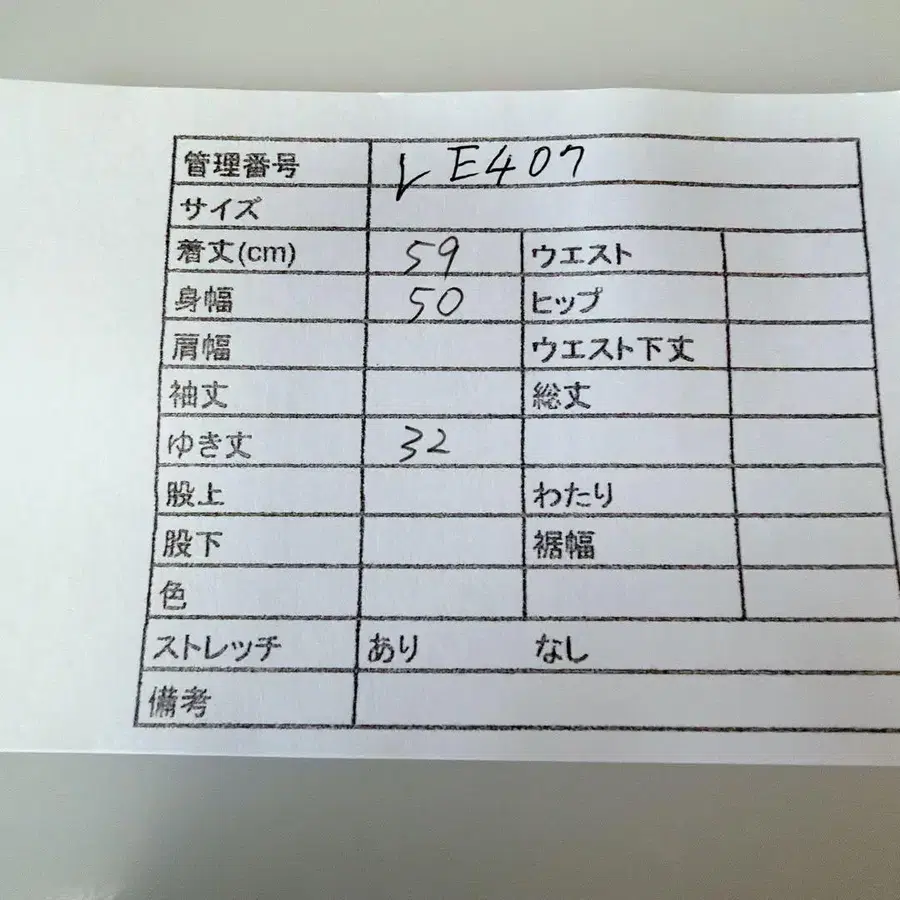 管理番号 LE407
サイズ
着丈(cm) 59 ウエスト
身幅 50 ヒップ
肩幅 ウエスト下丈
袖丈 総丈
ゆき丈 32
股上 わたり
股下 裾幅
色
ストレッチ あり なし
備考